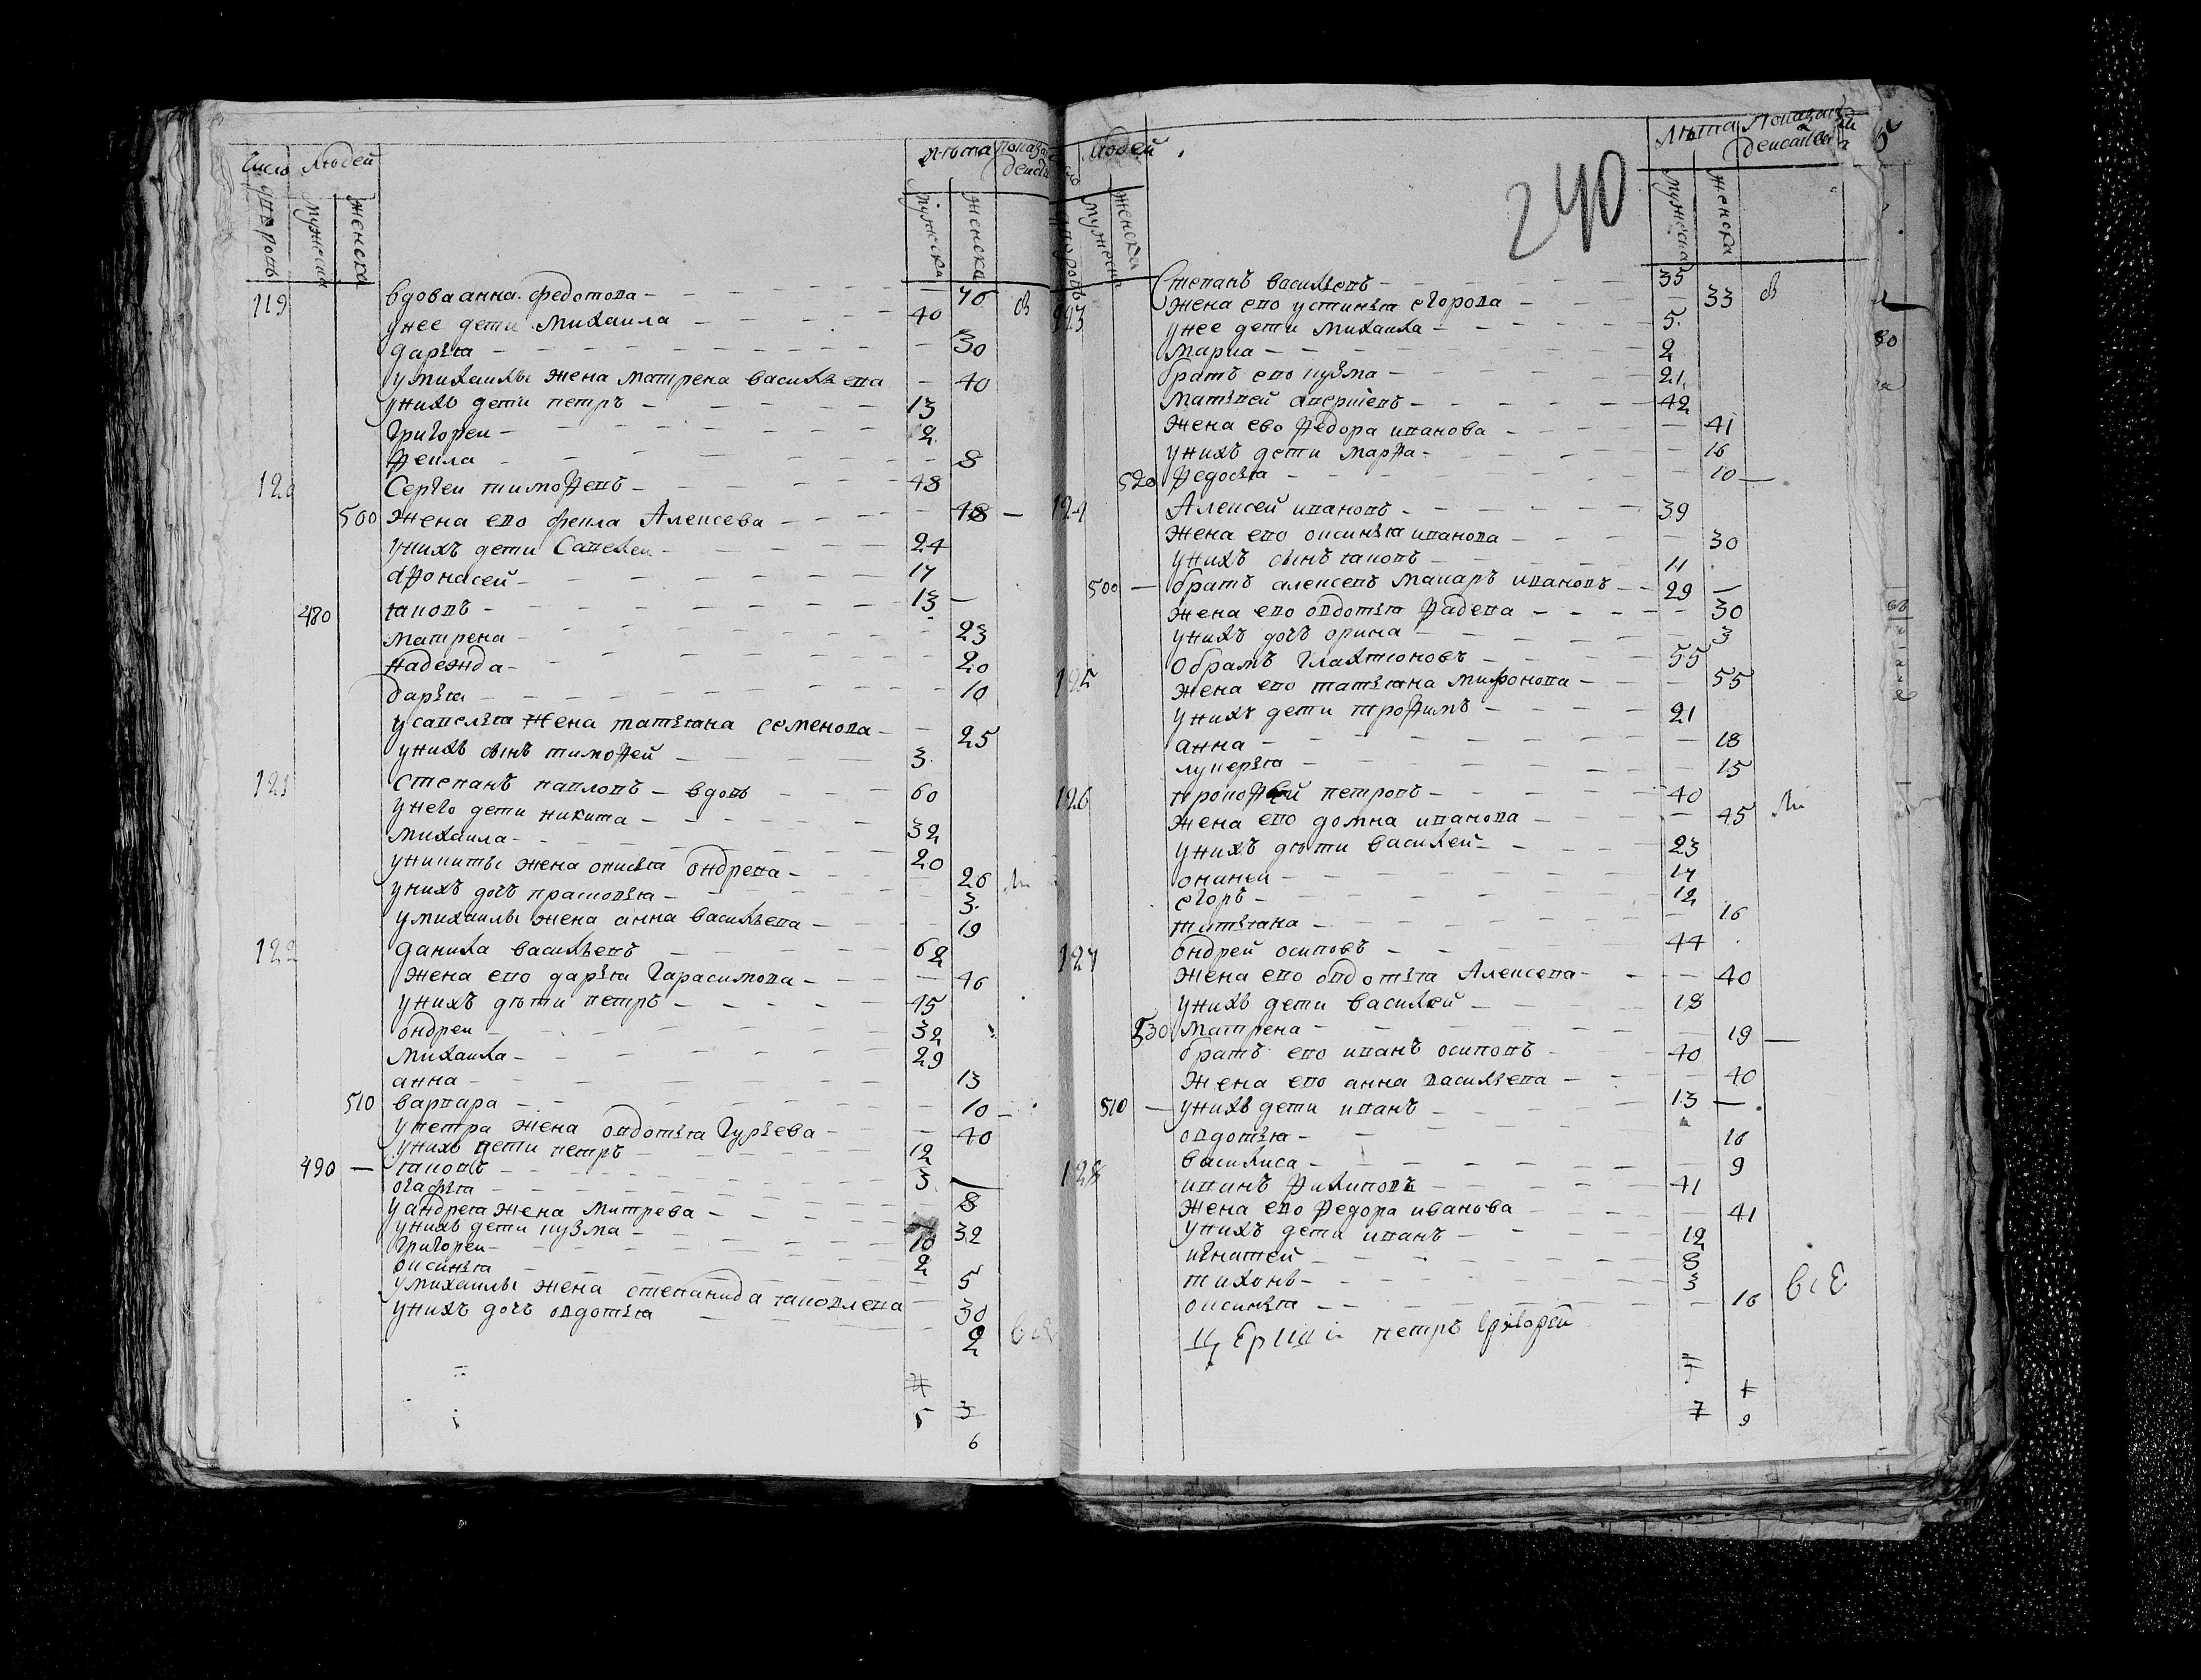 Число Людей Лѣта Показа
дворовъ мужеска женска мужеска женска
119 вдова анна федотова 70
у нее дети михаила 40
дарья 30
у михаилы жена матрена васильева 40
у нихъ дети петръ 13
григореи 2
фекла 8
120 Сергеи тимофевъ 48
500 жена ево фекла Алексева 48
у нихъ дети Савелеи 24
афонасей 17
480 яковъ 13
матрена 23
надежда 20
дарья 10
у савелья жена татьяна семенова 25
у нихъ сынъ тимофей 3
121 степанъ павловъ вдовъ 60
у него дети никита 32
михаила 20
у никиты жена ондрева 26
у нихъ дочь прасковья 3
у михаилы жена анна васильева 19
122 данила васильевъ 62
жена ево дарья гарасимова 46
у нихъ дѣти петръ 45
ондреи 32
михаила 29
анна 13
510 варвара 10
у петра жена овдотья гурьева 40
у нихъ дети петръ 12
490 яковъ 3
огафья 8
у андрея жена митрева 32
у нихъ дети кузма 10
григореи 2
оксинья 5
у михаилы жена степанида яковлева 30
у нихъ дочь овдотья 2
5 3
6
Людей Лѣта
мужеска женска мужеска женска
240
Степанъ васильевъ 35
123 жена ево устинья егорова 33
у нее дети михаила 5
мариа 2
братъ ево кузма 21
матвей аверкіевъ 42
жена ево федора иванова 41
у нихъ дети марфа 16
520 федосья 10
124 Алексей ивановъ 39
жена ево оксинья иванова 30
у нихъ сынъ яковъ 11
500 братъ алексевъ макаръ ивановъ 29
жена ево овдотья фадева 30
у нихъ дочь орина 3
125 обрамъ галахтионовъ 55
жена ево татьяна миронова 55
у нихъ дети трофимъ 21
анна 18
лукерья 15
126 прокофей петровъ 40
жена ево домна иванова 45
у нихъ дѣти василей 23
ананеи 17
егоръ 12
татьяна 16
127 ондрей осиповъ 44
жена ево овдотья Алексева 40
у нихъ дети василей 18
530 матрена 19
братъ ево иванъ осиповъ 40
жена ево анна васильева 40
510 у нихъ дети иванъ 13
овдотья 16
василиса 9
128 иванъ филиповъ 41
жена ево федора иванова 41
у нихъ дети иванъ 12
игнатей 8
тихонъ 3
оксинья 16
петръ григорей
7 9